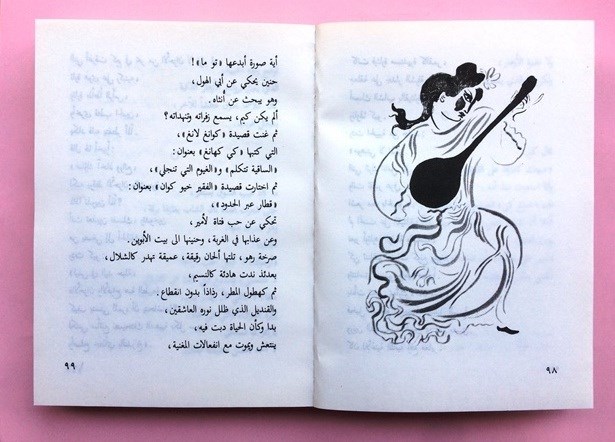 أية صورة أبدعها «تو ما»!
حنين يحكي عن أبي الهول،
وهو يبحث عن أنثاه.
ألم يكن كيم، يسمع زفراته وتنهداته؟
ثم غنت قصيدة «كوانغ لانغ»،
التي كتبها «كي كهانغ» بعنوان:
«الساقية تتكلم» و«الغيوم التي تنجلي»،
ثم اختارت قصيدة «الفقير خيو كوان» بعنوان:
«قطار عبر الحدود»،
تحكي عن حب فتاة لأمير،
وعن عذابها في الغربة، وحنينها الى بيت الأبوين.
صرخة رهو، تلتها ألحان رقيقة، عميقة تهدر كالشلال،
بعدئذ ندت هادئة كالنسيم،
ثم كهطول المطر، رذاذاً بدون انقطاع.
والقنديل الذي ظلل نوره العاشقين،
بدا وكأن الحياة دبت فيه،
ينتعش ويموت مع انفعالات المغنية،
٩٩
٩٨